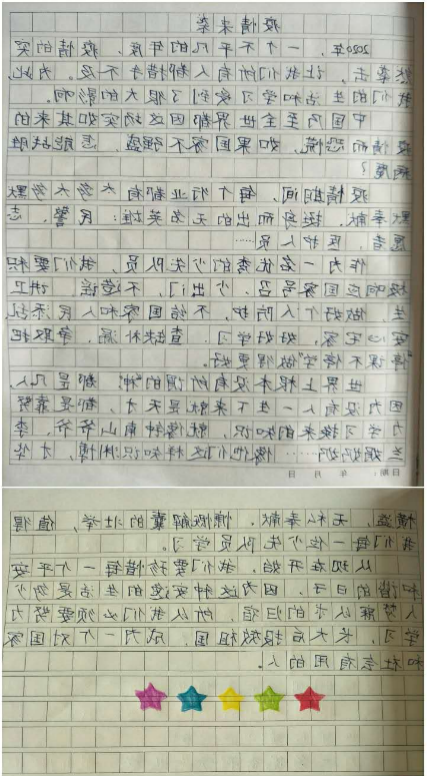 疫情来袭
2020年，一个不平凡的年度，疫情的突
然袭击，让我们所有人都措手不及。为此，
我们的生活和学习受到了很大的影响。
中国乃至全世界都因这场突如其来的
疫而情恐慌，如果国家不强盛，怎能战胜
病魔？
疫情期间，每个行业都有太多太多默
默奉献，挺身而出的无名英雄：民警，志
愿者，医护人员……
作为一名优秀的少先队员，我们要积
极响应国家号召，少出门，不造谣，讲卫
生，做好个人防护，不给国家和人民添乱
安心宅家，好好学习，查缺补漏，争取把
“停课不停学”做得更好。
世界上根本没有所谓的“神”都是凡人，
因为没有人一生下来就是天才，都是靠努
力学习换来的知识，就像钟南山爷爷，李
兰娟奶奶……像他们这样知识渊博，才华
日期： 年 月 日
横溢，无私奉献，慷慨解囊的壮举，值得
我们每一位少先队员学习。
从现在开始，我们要珍惜每一个平安
和谐的日子，因为这种安逸的生活是多少
人梦寐以求的归宿，所以我们必须要努力
学习，长大后报效祖国，成为一个对国家
和社会有用的人。